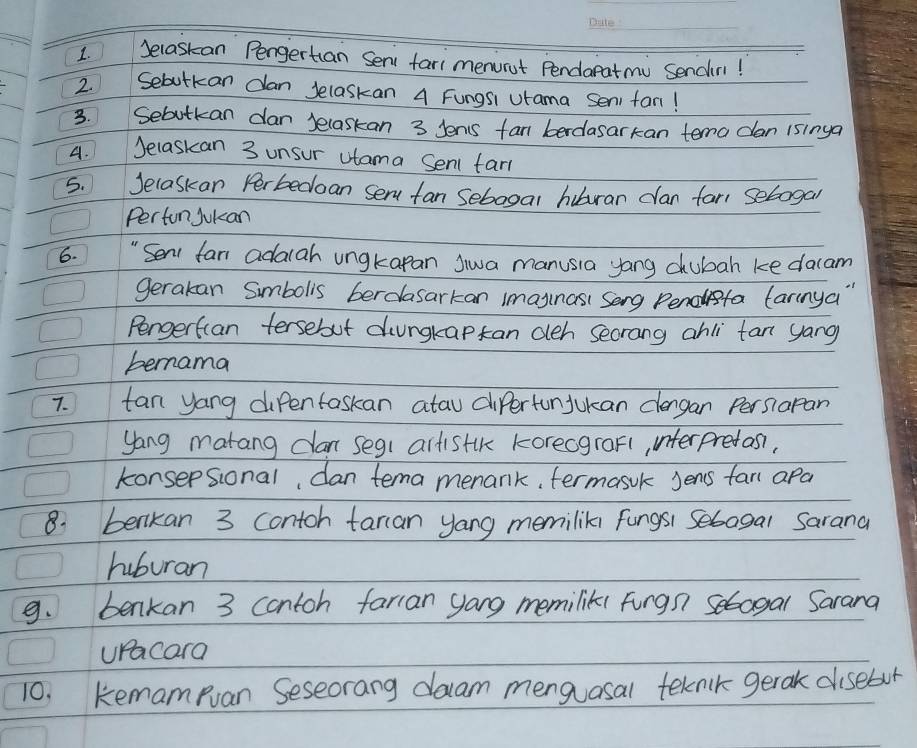 Date:
1. Jelaskan Pengertian Seni tari menurut Pendapatmu Sendiri!
2. Sebutkan dan Jelaskan 4 Fungsi Utama Seni tari!
3. Sebutkan dan Jelaskan 3 Jenis tari berdasarkan tema dan isinya
4. Jelaskan 3 unsur utama Seni tari
5. Jelaskan Perbedaan seni tari Sebagai hiburan dan tari sebagai
Pertunjukan
6. "Seni tari adalah ungkapan jiwa manusia yang diubah ke dalam
gerakan Simbolis berdasarkan imajinasi Sang Pencipta tarinya"
Pengertian tersebut diungkapkan oleh seorang ahli tari yang
bernama
7. tari yang diPentaskan atau diPertunjukan dengan Persiapan
yang matang dari segi artistik koreografi, interpretasi,
konsepsional, dan tema menarik. termasuk jenis tari apa
8. berikan 3 contoh tarian yang memiliki fungsi Sebagai Sarana
hiburan
9. berikan 3 contoh tarian yang memiliki fungsi sebagai Sarana
uPacara
10. Kemampuan Seseorang dalam menguasai teknik gerak disebut